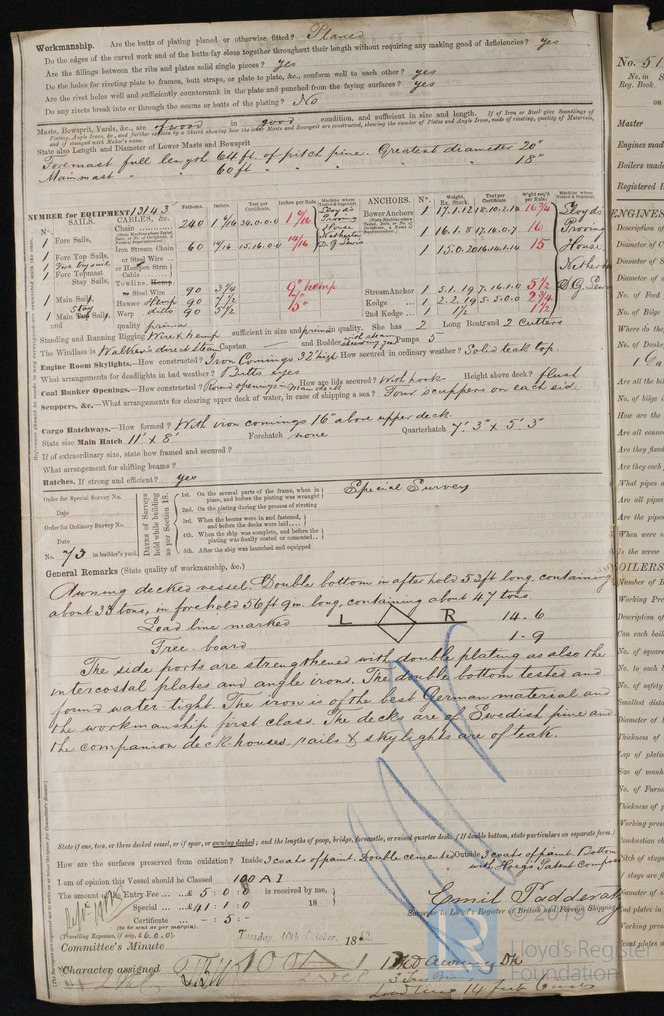 Workmanship. Are the butts of plating planed or otherwise fitted? Planed
Do the edges of the carvel work and of the butts fay close together throughout their length without requiring any making good of deficiencies? yes
Are the fillings between the ribs and plates solid single pieces? yes
Do the holes for riveting plate to frames, butt straps, or plate to plate, &c., conform well to each other? yes
Are the rivet holes well and sufficiently countersunk in the plate and punched from the faying surfaces? yes
Do any rivets break into or through the seams or butts of the plating? No
Masts, Bowsprit, Yards, &c., are of wood in good condition, and sufficient in size and length.
State also Length and Diameter of Lower Masts and Bowsprit
Foremast full length 64 ft. of pitch pine. Greatest diameter 20"
Mainmast " " 60 ft " " " " 18"
NUMBER for EQUIPMENT 13143
SAILS. CABLES, &c. Fathoms. Inches. Test per Certificate. Inches per Rule. ANCHORS. Nº. Weight. Ex. Stock. Test per Certificate Wght req'd per Rule.
Nº.
1 Fore Sails,
Chain 240 1 9/16 34.0.0.0 1 9/16 Lloyd's Proving House Netherton
Bower Anchors 1 17.1.12 18.10.2.14 16 3/4 Lloyds
1 16.1.8 17.14.0.7 16 Proving
Iron Stream Chain 60 14/16 15.16.0.0 14/16
1 15.0.20 16.14.1.14 15 House
1 Fore Top Sails,
or Steel Wire
or Hempen Strm Cable
1 Fore Topmast Stay Sails,
Towline, Hemp or Steel Wire 90 3 1/4 9" hemp
Stream Anchor 1 5.1.19 7.16.1.0 5 1/2
1 Main Sails,
Hawser Hemp 90 7 1/2
Kedge 1 2.2.19 5.5.0.0 2 3/4
1 Stay
Warp ditto 90 5 1/2 5"
2nd Kedge 1 1 1/2 1 1/2
and quality prima
Standing and Running Rigging Wire & hemp sufficient in size and prima in quality. She has 2 Long Boats and 2 Cutters
The Windlass is Walker's direct steam Capstan and Rudder with steam steering gear Pumps 5
Engine Room Skylights.—How constructed? Iron Comings 32" high How secured in ordinary weather? Solid teak top.
What arrangements for deadlights in bad weather? Bulls eyes
Coal Bunker Openings.—How constructed? Round openings in main deck How are lids secured? With hook Height above deck? flush
Scuppers, &c.—What arrangements for clearing upper deck of water, in case of shipping a sea? Four scuppers on each side
Cargo Hatchways.—How formed? With iron comings 16" above upper deck.
State size Main Hatch 11' x 8' Forehatch none Quarterhatch 7' 3" x 5' 3"
If of extraordinary size, state how framed and secured?
What arrangement for shifting beams?
Hatches, If strong and efficient? yes
Order for Special Survey No.
Date
Order for Ordinary Survey No.
Date
No. 73 in builder's yard.
DATES of Surveys held while building as per Section 18.
1st. On the several parts of the frame, when in place, and before the plating was wrought
2nd. On the plating during the process of riveting
3rd. When the beams were in and fastened, and before the decks were laid....
4th. When the ship was complete, and before the plating was finally coated or cemented..
5th. After the ship was launched and equipped
Special Survey
General Remarks (State quality of workmanship, &c.)
Awning decked vessel. Double bottom in after hold 52 ft long, containing
about 33 tons, in forehold 56 ft 9 in. long, containing about 47 tons
Load line marked L R 14.6
Free-board 1.9
The side ports are strengthened with double plating as also the
intercostal plates and angle irons. The double bottom tested and
found water-tight. The iron is of the best German material and
the workmanship first class. The decks are of Swedish pine and
the companion deck-houses, rails & skylights are of teak.
State if one, two, or three decked vessel, or if spar, or awning decked; and the lengths of poop, bridge, forecastle, or raised quarter deck. (If double bottom, state particulars on separate form.)
How are the surfaces preserved from oxidation? Inside 3 coats of paint. Double cemented Outside 3 coats of paint. Bottom
I am of opinion this Vessel should be Classed 100 A I
The amount of the Entry Fee ... £ 5 : 0 : 0 is received by me,
Special ... £ 41 : 1 : 0 18
Certificate ... - : 5 : -
(to be sent as per margin)
(Travelling Expenses, if any, £6.0.0).
Emil Padderatz
Surveyor to Lloyd's Register of British and Foreign Shipping
Committee's Minute Tuesday, 10th October, 1882.
Character assigned 100 A 1
Load line 14 feet 6 ins
© 2019
Lloyd's Register
Foundation
No. 51
No. in
Reg. Book.
on
Master
Engines made
Boilers made
Registered
ENGINES
Description of
Diameter of
Diameter of
No. of Feed
No. of Bilge
Where do they
No. of Donkey
Are all the
No. of bilge
How are the
Are all connec
Are they fixed
Are they each
What pipes a
Are all pipes
Are the pipes
When were
Is the screw
BOILERS
Number of B
Working Pre
Description of
Can each boil
No. of square
No. to each
No. of safety
Smallest dista
Diameter of
Thickness of
Lap of plati
Size of manh
No. of Furna
Thickness of
Working press
Combustion ch
Pitch of stays
If stays are fi
Diameter of
End plates in
Working press
Front plates